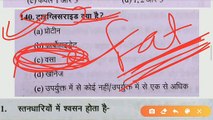 140. ट्राइग्लिसराइड क्या है?
(a) प्रोटीन
(c) वसा
(d) खनिज
(e) उपर्युक्त में से कोई नहीं/उपर्युक्त में से एक से अधिक
1. स्तनधारियों में श्वसन होता है-
Fat